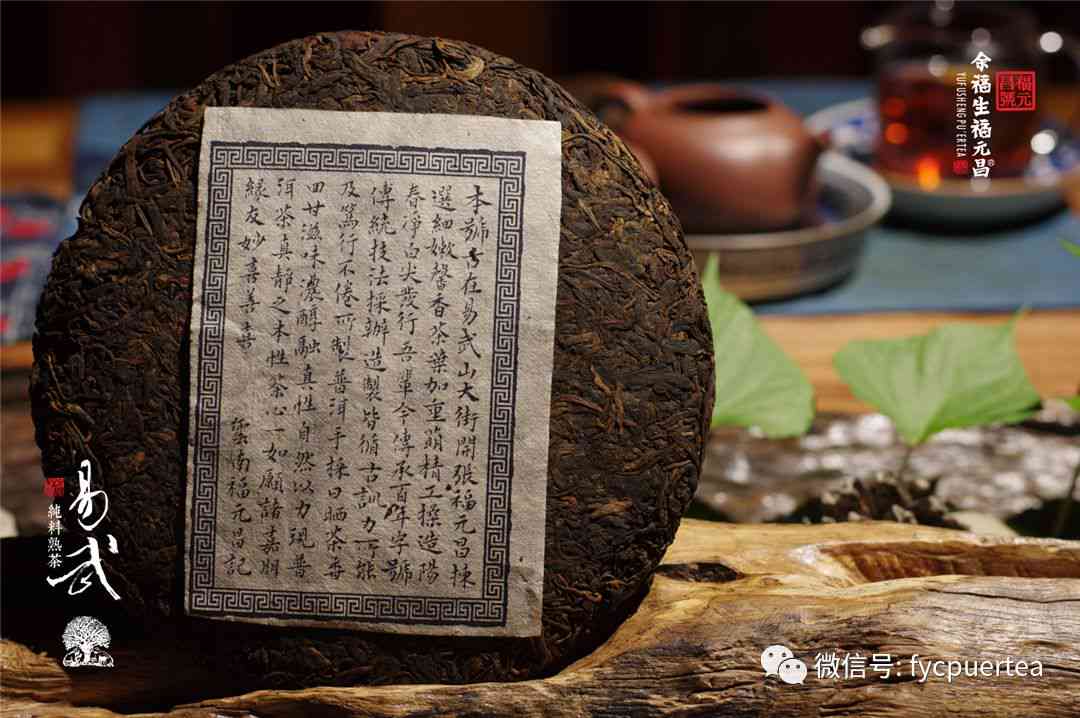 本號在易武山大街開張福元昌揀
選細嫩馨香茶葉加重萌精工揉造陽
春淨白尖發行吾輩今傳承百年字號
傳統技法採辦造製皆循古訓力所能
及篤行不倦所製普洱手採日晒茶香
回甘滋味濃醇融真性自然以力現普
洱茶真靜之本性茶心一如願諸嘉朋
緣友妙喜善
雲南福元昌記
余福生福元昌
YUFUSHENG PU'ERTEA
福元昌號
易武
純料熟茶
微信号: fycpuertea